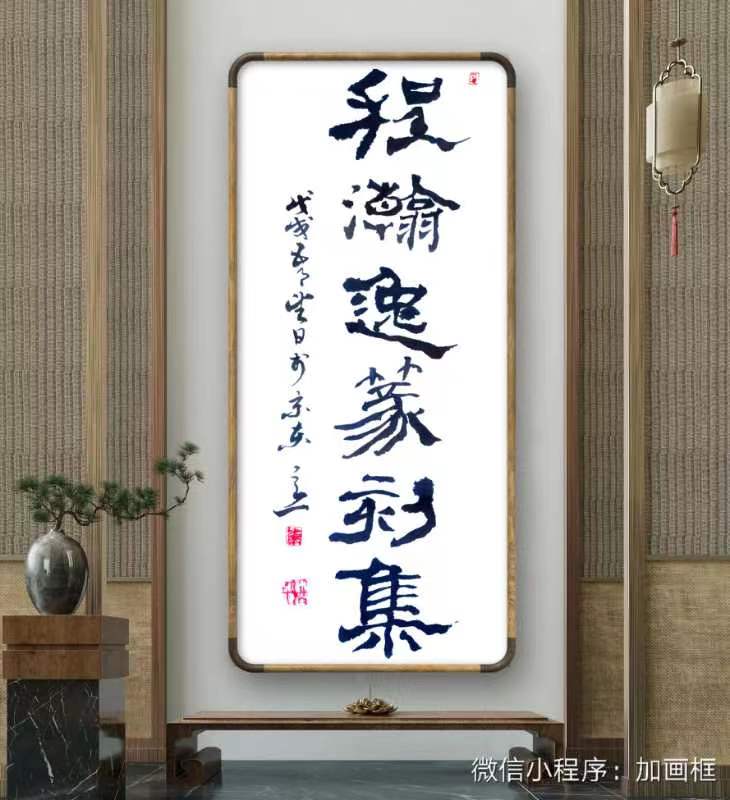 程瀚逸篆刻集
戊戌春望日於京东
微信小程序：加画框